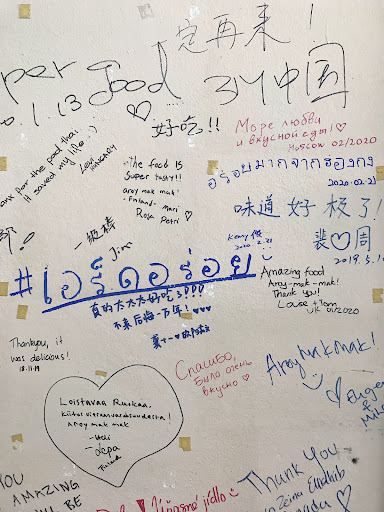 定再来!
per good
0.1.13
3Y中国
好吃!!
Море любви
и вкусной еды!♡
Moscow 02/2020
for the food that
it saved my life :)
Lew
The food is
super tasty!!
aroy mak mak!
-Finland- Mari
Rosa Petri ♡
อร่อยมากจากฮ่องกง
2020.02.21
味道好极了!
裴♡周
2019.5.1
一级棒
Jim
2020.2.21
#เอรี่ดอร่อย
真的太太太好吃了???
Amazing food
Aroy-mak-mak!
Thank you!
Louise + Tom
UK 01/2020
Thankyou, it
was delicious!
18.11.19
Спасибо,
было очень
вкусно ♡
Aroy Mak Mak!
Eugen
&
Loistavaa Ruokaa,
Kiitos vieraanvaraisuudesta!
Aroy mak mak
-Juli
-Jepa
Finland
YOU
AMAZING
BE
jídlo
Thank You
Zeina